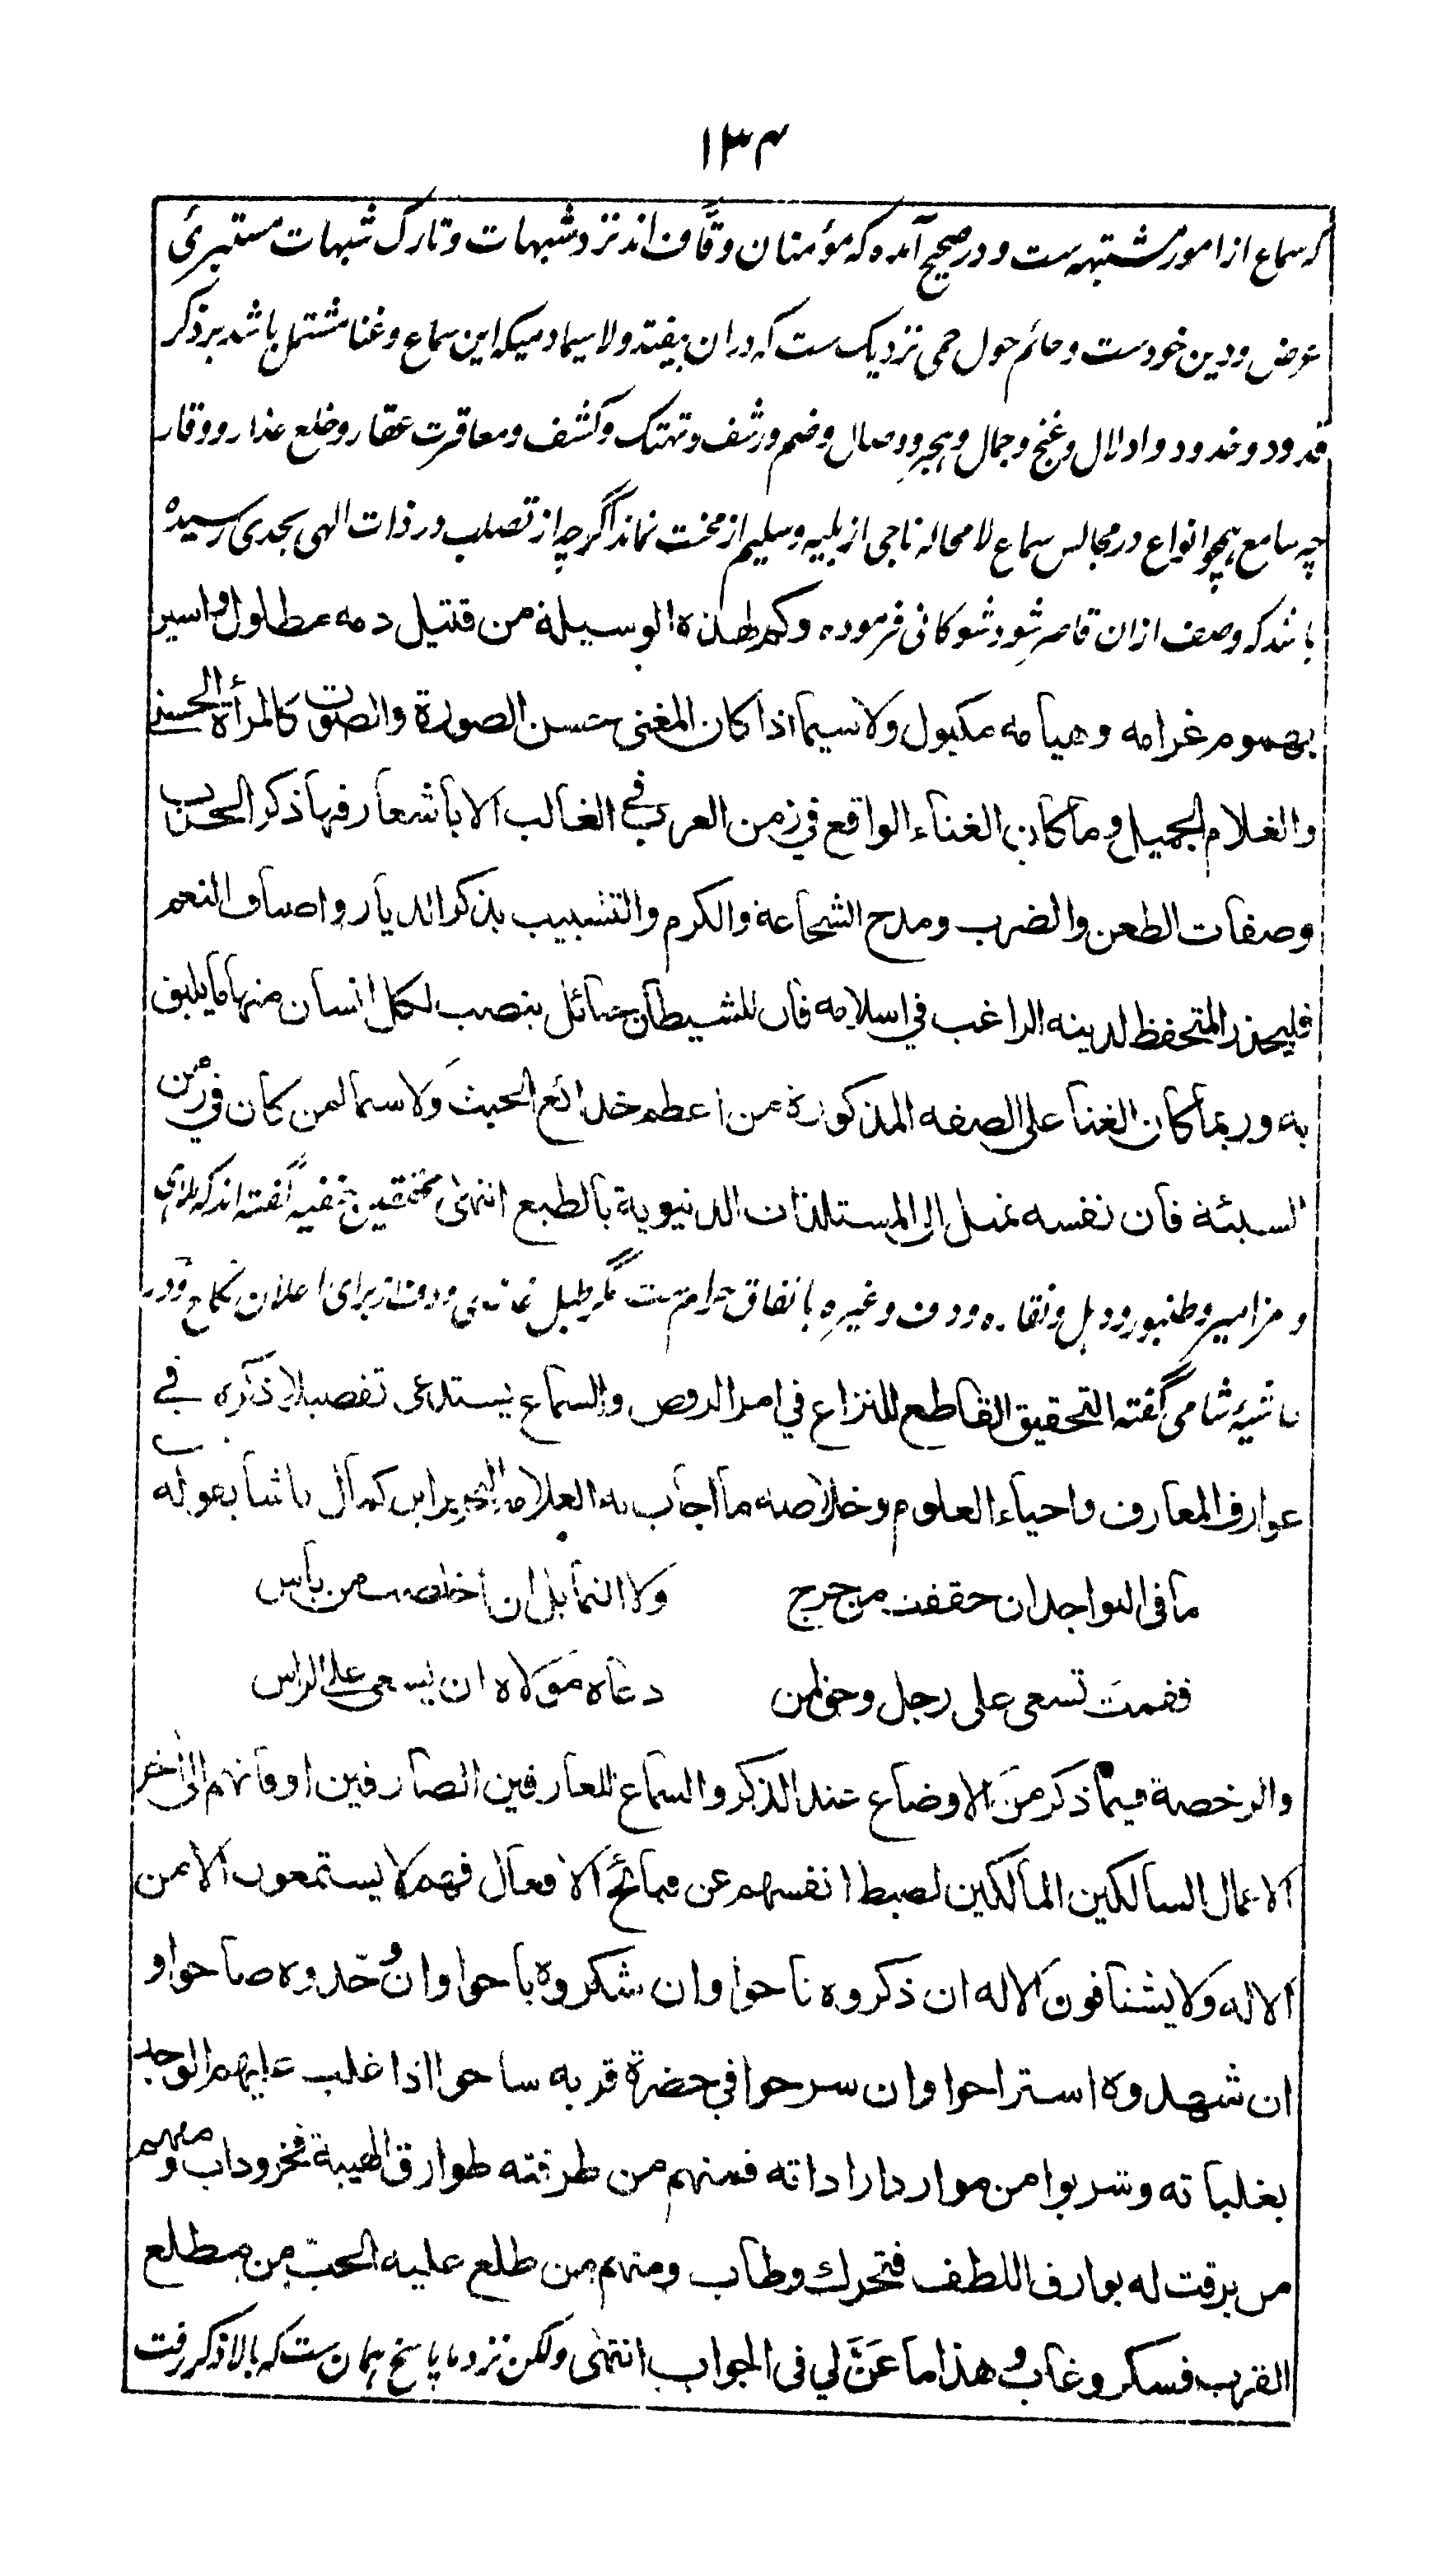 ۱۳۴
کہ سماع از امور مشتبہہ ست و در صحیح آمدہ کہ مؤمنان وقَّاف اند نزد شبہات و تارک شبہات مستبرئ
عرض و دین خودست و حائم حول حمی نزدیک ست کہ دران بیفتد ولا سیما دمیکہ این سماع و غنا مشتمل باشد بر ذکر
قدود و خدود و ادلال و غنج و جمال و ہجر و وصال و ضم و رشف و تہتک و کشف و معاقرت عقار و خلع عذار و وقار
چہ سامع ہمچو انواع در مجالس سماع لا محالہ ناجی از بلیہ و سلیم از محنت نماند اگرچہ از تصلب در ذات الہی بحدی رسیدہ
باشد کہ وصف ازان قاصر شود شوکانی فرمودہ وكم لهذه الوسيلة من قتيل دمه مطلول واسير
بهموم غرامه وهيامه مكبول ولاسيما اذا كان المغنى حسن الصورة والصوت كالمرأة الحسناء
والغلام الجميل وما كان الغناء الواقع في زمن العرب في الغالب الا باشعار فيها ذكر الحرب
وصفات الطعن والضرب ومدح الشجاعة والكرم والتشبيب بذكر الديار واصناف النعم
فليحذر المتحفظ لدينه الراغب في اسلامه فان للشيطان حبائل ينصب لكل انسان منها ما يليق
به وربما كان الغنا على الصفه المذكورة من اعظم خدائع الخبيث ولاسيما لمن كان في زمن
الشبيبة فان نفسه تميل الى المستلذات الدنيوية بالطبع انتہی محققین حنفیہ گفتہ اند کہ ملاہی
و مزامیر و طنبور و دہل و نقارہ و دف و غیرہ باتفاق حرام ست مگر طبل غازی و دف از برای اعلان نکاح و در
حاشیۂ شامی گفتہ التحقيق القاطع للنزاع في امر الرقص والسماع يستدعى تفصيلا ذكره في
عوارف المعارف واحياء العلوم وخلاصه ما اجاب به العلامة النحرير ابن كمال باشا بقوله
ما فى التواجد ان حققت من حرج ولا التمايل ان اخلصت من باس
فقمت تسعى على رجل وحق لمن دعاه مولاه ان يسعى على الراس
والرخصة فيما ذكر من الاوضاع عند الذكر والسماع للعارفين الصارفين اوقاتهم الى اخر
الاعمال السالكين المالكين لضبط انفسهم عن قبائح الافعال فهم لا يستمعون الا من
الاله ولا يشتاقون الا له ان ذكروه ناحوا وان شكروه باحوا وان وجدوه صاحوا و
ان شهدوه استراحوا وان سرحوا في حضرة قربه ساحوا اذا غلب عليهم الوجد
بغلباته وشربوا من موارد اراداته فمنهم من طرقته طوارق الهيبة فخر وذاب ومنهم
من برقت له بوارق اللطف فتحرك وطاب ومنهم من طلع عليه الحب من مطلع
القرب فسكر وغاب وهذا ما عَنَّ لي فى الجواب انتہی ولکن نزد ما پاسخ ہمان ست کہ بالا ذکر رفت